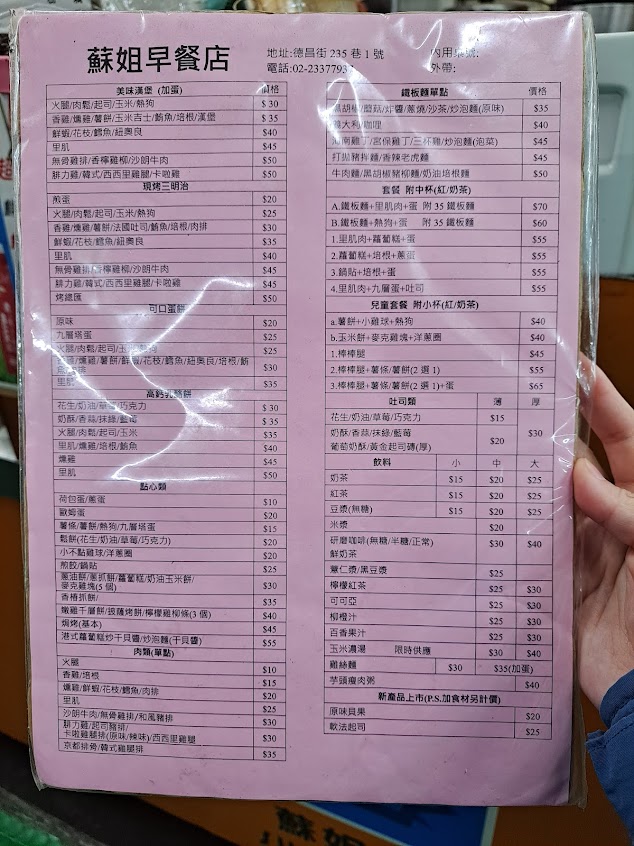 蘇姐早餐店
地址:德昌街 235 巷 1 號
電話:02-2337793
內用桌號:
外帶:
美味漢堡 (加蛋) 價格
火腿/肉鬆/起司/玉米/熱狗 $ 30
香雞/燻雞/薯餅/玉米吉士/鮪魚/培根/漢堡 $ 35
鮮蝦/花枝/鱈魚/紐奧良 $40
里肌 $45
無骨雞排/香檸雞柳/沙朗牛肉 $50
腓力雞/韓式/西西里雞腿/卡啦雞 $50
現烤三明治
煎蛋 $20
火腿/肉鬆/起司/玉米/熱狗 $25
香雞/燻雞/薯餅/法國吐司/鮪魚/培根/肉排 $30
鮮蝦/花枝/鱈魚/紐奧良 $35
里肌 $40
無骨雞排/香檸雞柳/沙朗牛肉 $45
腓力雞/韓式/西西里雞腿/卡啦雞 $45
烤總匯 $50
可口蛋餅
原味 $20
九層塔蛋 $25
火腿/肉鬆/起司/玉米/熱狗 $25
香雞/燻雞/薯餅/鮮蝦/花枝/鱈魚/紐奧良/培根/鮪 $30
里肌 $35
高鈣乳酪餅
花生/奶油/草莓/巧克力 $ 30
奶酥/香蒜/抹綠/藍莓 $ 35
火腿/肉鬆/起司/玉米 $35
里肌/燻雞/培根/鮪魚 $40
燻雞 $45
里肌 $50
點心類
荷包蛋/蔥蛋 $10
歐姆蛋 $20
薯條/薯餅/熱狗/九層塔蛋 $15
鬆餅(花生/奶油/草莓/巧克力) $20
小不點雞球/洋蔥圈 $20
煎餃/鍋貼 $25
蔥油餅/蔥抓餅/蘿蔔糕/奶油玉米餅/
麥克雞塊(5 個) $30
香椿抓餅/ $35
嫩雞千層餅/披薩烤餅/檸檬雞柳條(3 個) $40
焗烤(基本) $45
港式蘿蔔糕炒干貝醬/炒泡麵(干貝醬) $55
肉類(單點)
火腿 $10
香雞/培根 $15
燻雞/鮮蝦/花枝/鱈魚/肉排 $20
里肌 $25
沙朗牛肉/無骨雞排/和風豬排 $30
腓力雞/起司豬排/
卡啦雞腿排(原味/辣味)/西西里雞腿 $30
京都排骨/韓式雞腿排 $35
鐵板麵單點 價格
黑胡椒/蘑菇/炸醬/蔥燒/沙茶/炒泡麵(原味) $35
義大利/咖哩 $40
海南雞丁/宮保雞丁/三杯雞/炒泡麵(泡菜) $45
打拋豬拌麵/香辣老虎麵 $45
牛肉麵/黑胡椒豬柳麵/奶油培根麵 $50
套餐 附中杯(紅/奶茶)
A.鐵板麵+里肌肉+蛋 附 35 鐵板麵 $70
B.鐵板麵+熱狗+蛋 附 35 鐵板麵 $60
1.里肌肉+蘿蔔糕+蛋 $55
2.蘿蔔糕+培根+蔥蛋 $55
3.鍋貼+培根+蛋 $55
4.里肌肉+九層蛋+吐司 $55
兒童套餐 附小杯(紅/奶茶)
a.薯餅+小雞球+熱狗 $40
b.玉米餅+麥克雞塊+洋蔥圈 $40
1.棒棒腿 $45
2.棒棒腿+薯條/薯餅(2 選 1) $55
3.棒棒腿+薯條/薯餅(2 選 1)+蛋 $65
吐司類 薄 厚
花生/奶油/草莓/巧克力 $15
奶酥/香蒜/抹綠/藍莓
葡萄奶酥/黃金起司磚(厚) $20 $30
飲料 小 中 大
奶茶 $15 $20 $25
紅茶 $15 $20 $25
豆漿(無糖) $15 $20 $25
米漿 $20
研磨咖啡(無糖/半糖/正常) $30 $40
鮮奶茶
薏仁漿/黑豆漿 $25
檸檬紅茶 $25 $30
可可亞 $25 $30
柳橙汁 $25 $30
百香果汁 $25 $30
玉米濃湯 限時供應 $30 $40
雞絲麵 $30 $35(加蛋)
芋頭瘦肉粥 $40
新產品上市(P.S.加食材另計價)
原味貝果 $20
軟法起司 $25
蘇姐